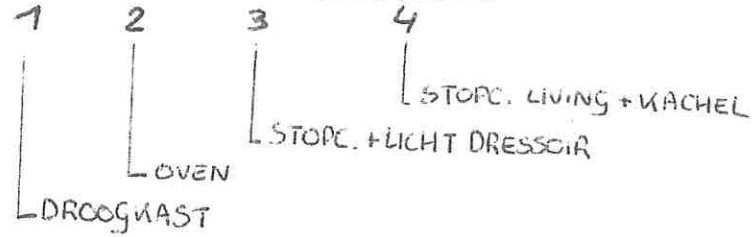 1 2 3 4
STOPC. LIVING + KACHEL
STOPC. + LICHT DRESSOIR
OVEN
DROOGKAST